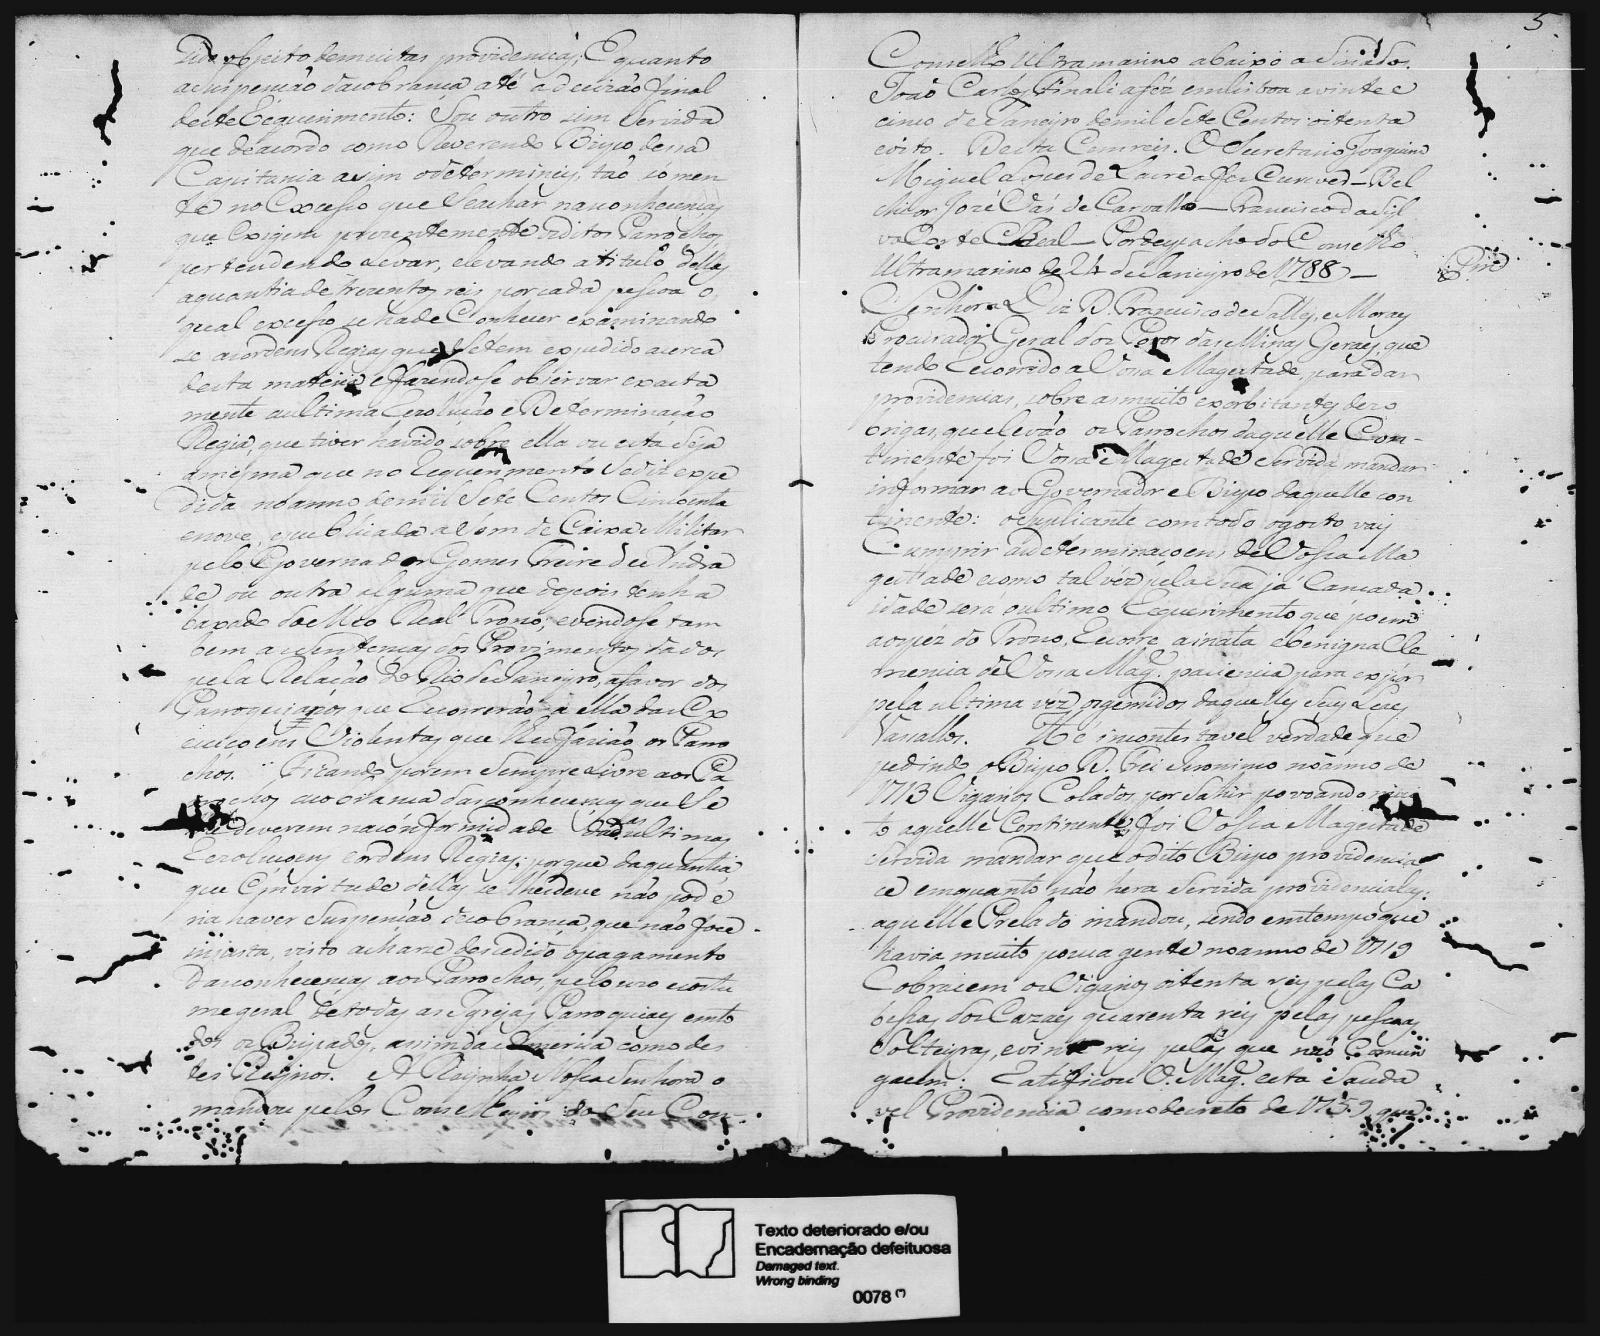 sido objeito demuitas providencias; E quanto
asuspenção dacobranca athé adecizão final
deste Requerimento: Sou outro sim Servida
que deacordo como Reverendo Bispo dessa
Capitania assim odetermineis, taõ so men
te no Excesso que seachar nasconhecenças
que Exigem prezentemente osditos Parrochos,
pertendendo Levar, elevando atitulo dellas
aquantia detrezentos reis porcada pessoa o
qual excesso sehade Conhecer examinando
se asordens Regias que setem expedido acerca
desta materia efazendose observar exacta
mente aultima Rezolução e Determinação
Regia, que tiver havido sobre ella ou esta seja
amesma que no Requerimento sediz expe
dida noanno demil Sete Centos Cincoenta
enove, epublicada asom de Caixa Militar
pelo Governador Gomes Freire de Andra
de ou outra alguma que depois tenha
baxado do Meo Real Trono; evendose tam
bem as sentenças dos Provimentos dados
pela Relação do Rio de Janeiro, afavor dos
Parroquianos que Recorrerão a ella das Ex
ecuçoens Violentas que lhe fazião os Parro
chos. Ficando porem sempre Livre aos Pa
rochos acobranca dasconhecenças que se
lhe deverem naconformidade das ultimas
Rezoluçoens eordens Regias; porque daquantia
que Em virtude dellas se lhedeve não pode
ria haver Suspenção decobrança, que não foce
injusta, visto acharse decedido opagamento
dasconhecenças aos Parrochos, pelo uzo ecostu
megeral detodas as Igrejas Parroquiaes emto
dos os Bispados, assim da America como des
tes Reinos. A Raynha Nossa Senhora o
mandou pelos Conselheiros do Seu Con-
5
Conselho Ultramarino abaixo asinados.
João Carlos Finali afez emlisboa avinte e
cinco de Janeiro demil Sete Centos oitenta
eoito. Desta Cem reis. O Secretario Joaquim
Miguel Lopes de Lavre a fes Escrever _ Bel
chior José Vás de Carvalho _ Francisco da Sil
va Corte Real _ Pordespacho do Conselho
Ultramarino de 24 de Janeiro de 1788 _
Senhora Diz D. Francisco de Salles, e Moraes
Procurador Geral dos Povos das Minas Geraes, que
tendo Recorrido a Vossa Magestade para dar
providencias, sobre asmuito exorbitantes bezo
brigas, que levão os Parrochos daquelle Con-
tinente foi Vossa Magestade servida mandar
informar ao Governador e Bispo daquelle con
tinente: osuplicante comtodo ogosto vay
Cumprir asdeterminaçoens de Vossa Ma
gestade ecomo talvéz pela sua já Cansada
idade será oultimo Requerimento que poem
aospéz do Trono, Recorre ainata ebenigna Cle
mencia de Vossa Mag.e paciencia para expor
pela ultima véz osgemidos daquelles Seus Leaes
Vassallos. Hé incontestavel verdade que
pedindo o Bispo D. Frei Jeronimo noanno de
1713 Vigarios Colados por se hir povoando mui
to aquelle Continente, foi Vossa Magestade
servida mandar que odito Bispo providencia
ce emquanto não hera Servida providenciales;
aquelle Prelado mandou, sendo emtempo que
havia muito pouca gente noanno de 1719
Cobracem os Vigarios oitenta reis pelas Ca
beças dos Cazaes quarenta reis pelas pessoas
Solteyras, evinte reis pelas que não Comun
gacem: Ratificou V. Mag.e esta Sauda
vel Providencia comodecreto de 1759 que
Texto deteriorado e/ou
Encadernação defeituosa
Damaged text.
Wrong binding
0078 (*)